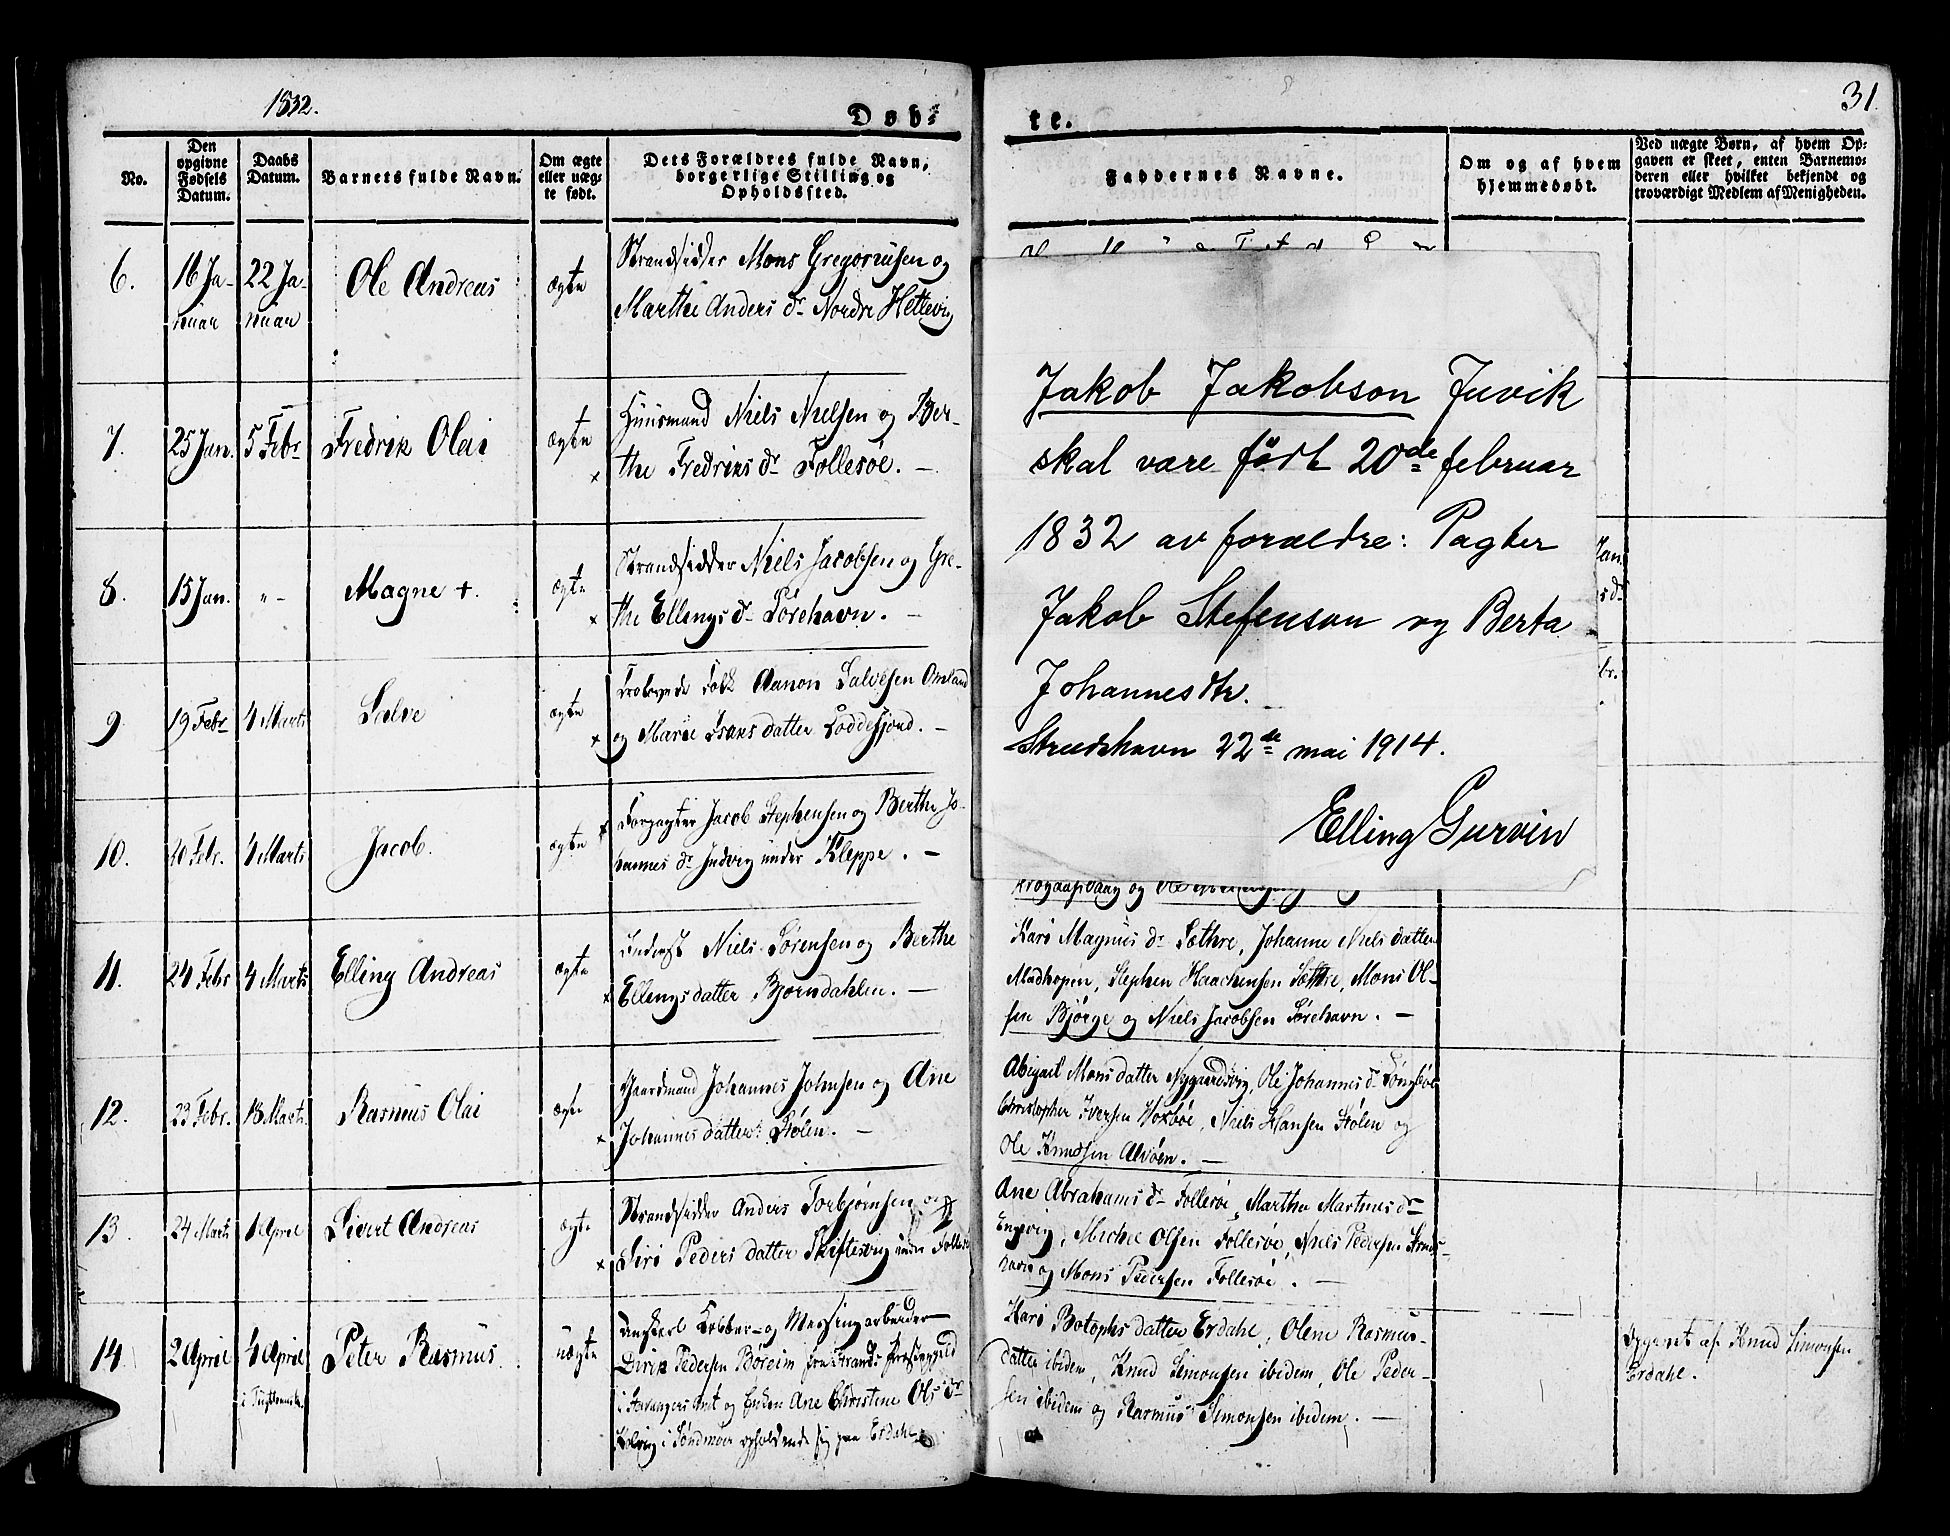 1832.
Døb-
te.
31.
No.
Den opgivne Fødsels Datum.
Daabs Datum.
Barnets fulde Navn.
Om ægte eller uægte født.
Dets Forældres fulde Navn, borgerlige Stilling og Opholdssted.
Faddernes Navne.
Om og af hvem hjemmedøbt.
Ved uægte Børn, af hvem Opgaven er skeet, enten Barnemoderen eller hvilket bekjendt og troværdigt Medlem af Menigheden.
6.
16 Januar
22 Januar
Ole Andreas
ægte
Strandsidder Mons Gregoriusen og
Marthe Anders dr Nordre Hettevig
7.
25 Jan.
5 Febr
Fredrik Olai
ægte
Huusmand Niels Nielsen og Ber-
the Fredriks dr Follesøe. —
8.
15 Jan.
"-
Magne +.
ægte
Strandsidder Niels Jacobsen og Gre-
the Ellings dr Sørehavn. —
9
19 Febr
4 Marts
Salve
ægte
Folk Aanon Salvesen Omland
og Marie datter Loddefjord. —
10.
20 Febr.
4 Marts
Jacob.
ægte
Forpagter Jacob Stephensen og Berthe Jo-
hannes dr Judvig under Kleppe. —
11.
24 Febr
4 Marts
Elling Andreas
ægte
Inderst Niels Sørensen og Berthe
Ellings datter Bjørndahlen. —
12.
23 Febr.
18 Marts.
Rasmus Olai
ægte
Gaardmand Johannes Johnsen og Ane
Johannes datter Stølen. —
13.
24 Marts
1 April
Sivert Andreas
ægte
Strandsidder Anders Torbjørnsen og
Siri Peders datter Skiftesvig under Follesø
14
2 April
4 April
i
Peter Rasmus
uægte
Ungkarl Kobber- og Messingarbeider
Dirik Pedersen Boreim fra Strands Præstegjeld
i Stavangers Amt og Enken Ane Christine Ols dr
i Søndmøer opholdende sig paa Erdahl.
Jakob Jakobson Juvik
skal være født 20de februar
1832 av forældre: Pagter
Jakob Stefenson og Berta
Johannesdtr.
Strudshavn 22de mai 1914.
Elling Gurvin
Jan.
s dr
br.
og Ole
Kari Magnus dr Sæthre, Johanne Niels datter
Madhopen, Stephen Haachensen Sæthre, Mons Ol-
sen Bjørge og Niels Jacobsen Sørehavn. —
Abigael Mons datter Nygaardsvig, Ole Johannes
Christopher Iversen Hoxbøe, Niels Hansen Stølen og
Ole Knudsen Alvøen. —
Ane Abrahams dr Follesøe, Marthe Martines dr
Engevig, Michel Olsen Follesøe, Niels Pedersen Struds-
havn og Mons Pedersen Follesøe. —
Kari Botophs datter Erdahl, Olene Rasmus-
datter ibidem, Knud Simonsen ibidem, Ole Peder-
sen ibidem og Rasmus Simonsen ibidem. —
Opgivet af Knud Simonsen
Erdahl.